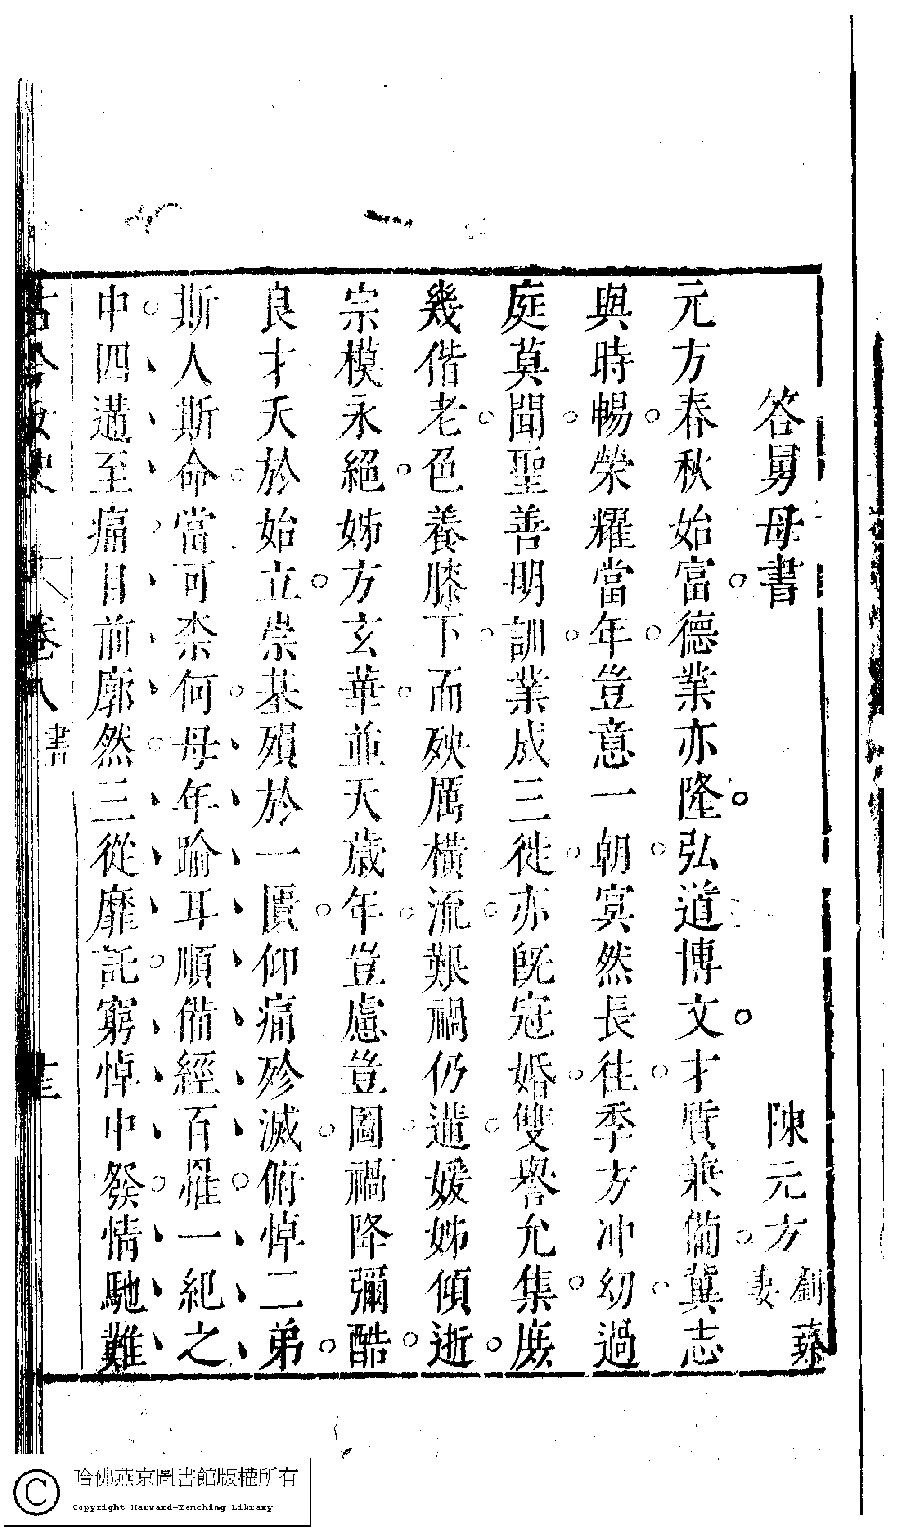 答舅母書
陳元方 劉臻妻
元方春秋始富德業亦隆弘道博文才質兼備冀志
與時暢榮耀當年豈意一朝寞然長往季方冲幼過
庭莫聞聖善明訓業成三徙亦旣冠婚雙譽允集庶
幾偕老色養膝下而殃厲橫流艱禍仍遘媛姊傾逝
宗模永絕姊方玄華並夭歲年豈慮豈圖禍降彌酷
良才夭於始立崇基殞於一匱仰痛殄滅俯悼二弟
斯人斯命當可柰何母年踰耳順備經百罹一紀之
中四遘至痛目前廓然三從靡託窮悼中發情馳難
古今女史 卷八 書
哈佛燕京圖書館版權所有
Copyright Harvard-Yenching Library